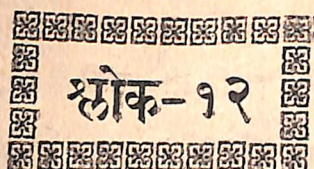 श्लोक-१२